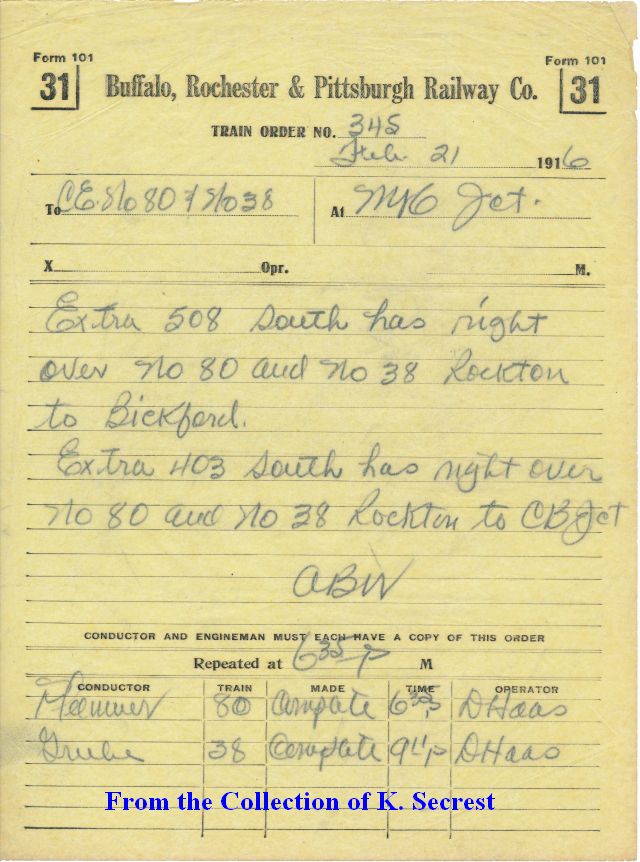 Form 101 Form 101
31 Buffalo, Rochester & Pittsburgh Railway Co. 31
TRAIN ORDER NO. 345
Feb. 21 1916
To C&E. No 80 & No 38 At Jct.
X Opr. M.
Extra 508 South has right
over No 80 and No 38 Rockton
to Bickford.
Extra 403 South has right over
No 80 and No 38 Rockton to CB Jct
ABW
CONDUCTOR AND ENGINEMAN MUST EACH HAVE A COPY OF THIS ORDER
Repeated at 6 35 P M
CONDUCTOR TRAIN MADE TIME OPERATOR
80 Complete 6 35 P D Haas
38 Complete 9 11 P D Haas
From the Collection of K. Secrest